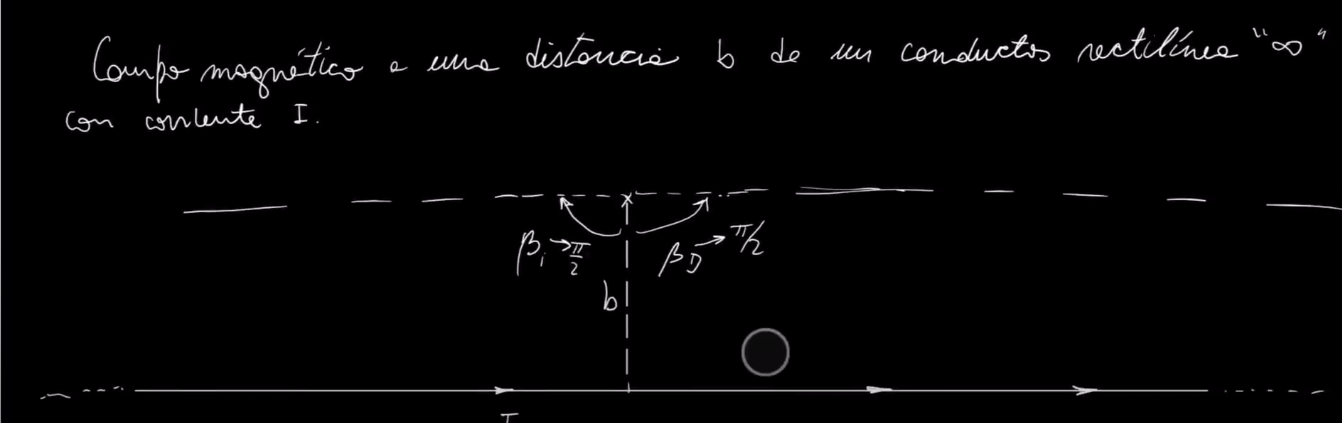 Campo magnético a una distancia b de un conductor rectilíneo "∞"
con corriente I.
βi → π/2
βD → π/2
b
I